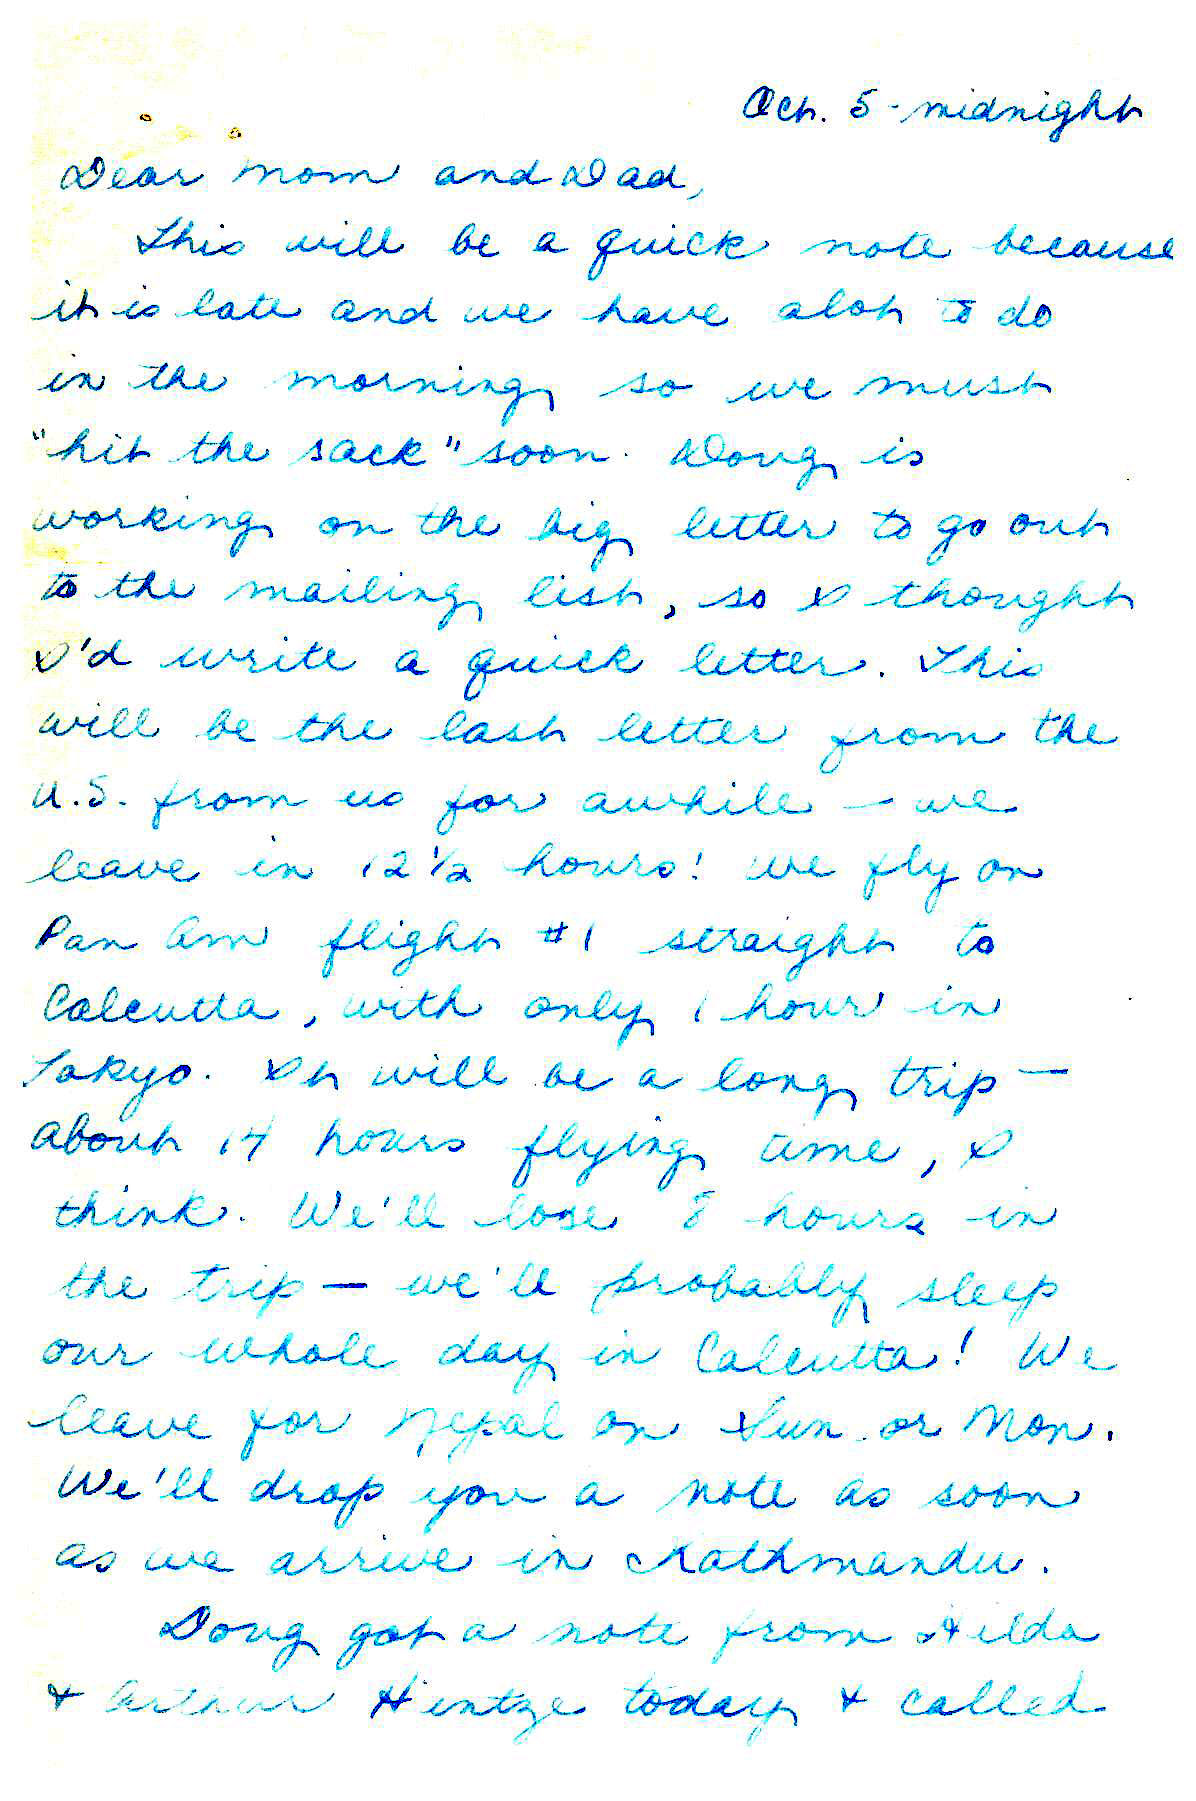 Oct. 5 - midnight
Dear Mom and Dad,
This will be a quick note because
it is late and we have alot to do
in the morning so we must
"hit the sack" soon. Doug is
working on the big letter to go out
to the mailing list, so I thought
I'd write a quick letter. This
will be the last letter from the
U.S. from us for awhile — we
leave in 12 1/2 hours! We fly on
Pan Am flight #1 straight to
Calcutta, with only 1 hour in
Tokyo. It will be a long trip —
about 14 hours flying time, I
think. We'll lose 8 hours in
the trip — we'll probably sleep
our whole day in Calcutta! We
leave for Nepal on Sun. or Mon.
We'll drop you a note as soon
as we arrive in Kathmandu.
Doug got a note from Hilda
& Arthur Hintze today & called